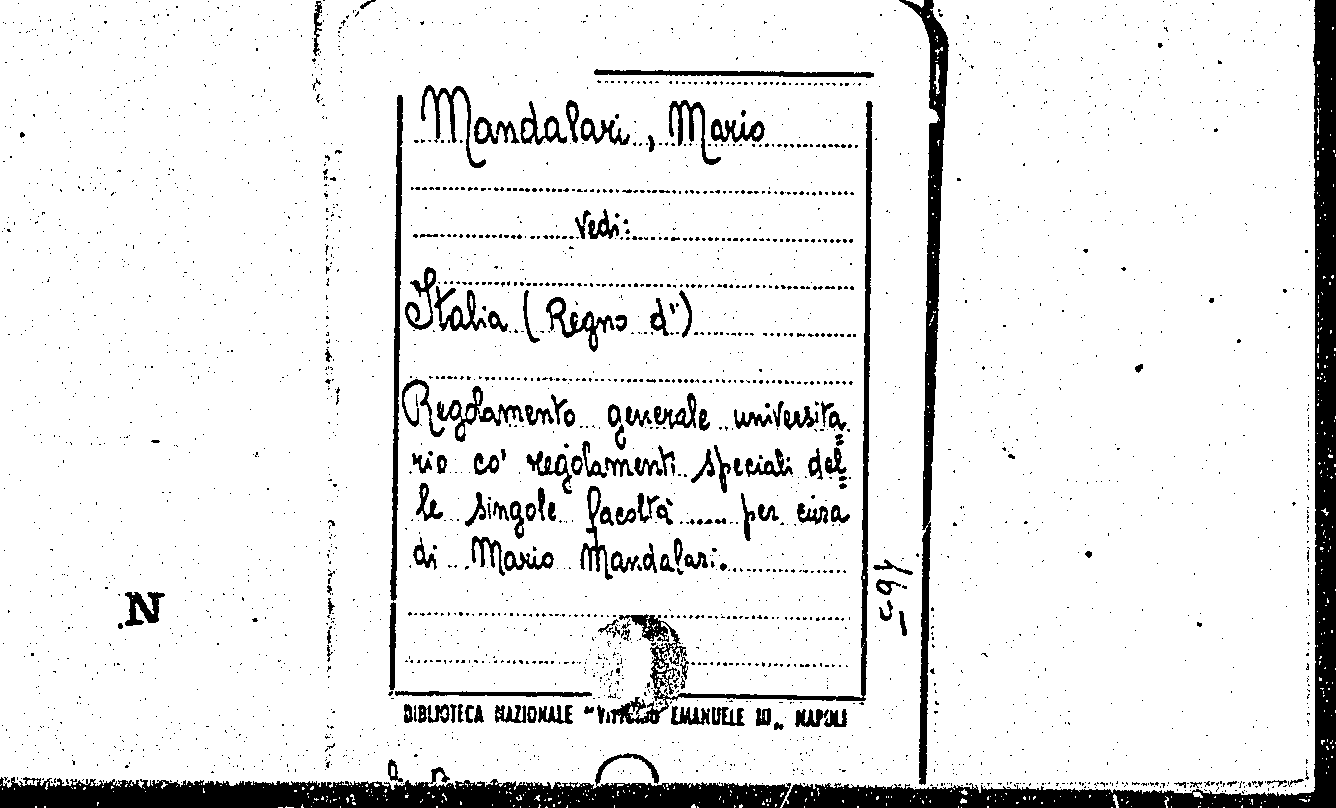 Mandalari, Mario
Vedi:
Italia (Regno d')
Regolamento generale universita=
rio co' regolamenti speciali del=
le singole facoltà ..... per cura
di Mario Mandalari.
N
BIBLIOTECA NAZIONALE "VITTORIO EMANUELE III" NAPOLI